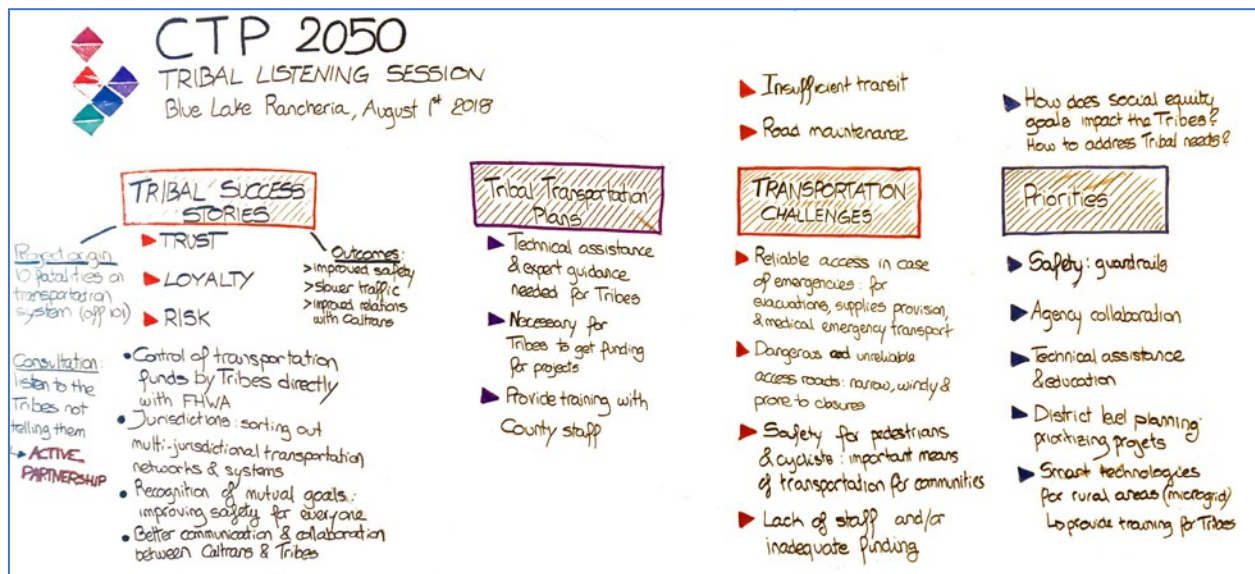 CTP 2050
TRIBAL LISTENING SESSION
Blue Lake Rancheria, August 1st 2018
TRIBAL SUCCESS
STORIES
Project origin
10 fatalities on
transportation
system (off 101)
Consultation:
listen to the
Tribes not
telling them
ACTIVE
PARTNERSHIP
TRUST
LOYALTY
RISK
Outcomes:
>improved safety
>slower traffic
>improved relations
with Caltrans
Control of transportation
funds by Tribes directly
with FHWA
Jurisdictions: sorting out
multi-jurisdictional transportation
networks & systems
Recognition of mutual goals:
improving safety for everyone
Better communication & collaboration
between Caltrans & Tribes
Tribal Transportation
Plans
Technical assistance
& expert guidance
needed for Tribes
Necessary for
Tribes to get funding
for projects
Provide training with
County staff
Insufficient transit
Road maintenance
TRANSPORTATION
CHALLENGES
Reliable access in case
of emergencies: for
evacuations, supplies provision,
& medical emergency transport
Dangerous and unreliable
access roads: narrow, windy &
prone to closures
Safety for pedestrians
& cyclists: important means
of transportation for communities
Lack of staff and/or
inadequate funding
How does social equity
goals impact the Tribes?
How to address Tribal needs?
Priorities
Safety: guardrails
Agency collaboration
Technical assistance
& education
District level planning:
prioritizing projets
Smart technologies
for rural areas (microgrid)
↳ provide training for Tribes